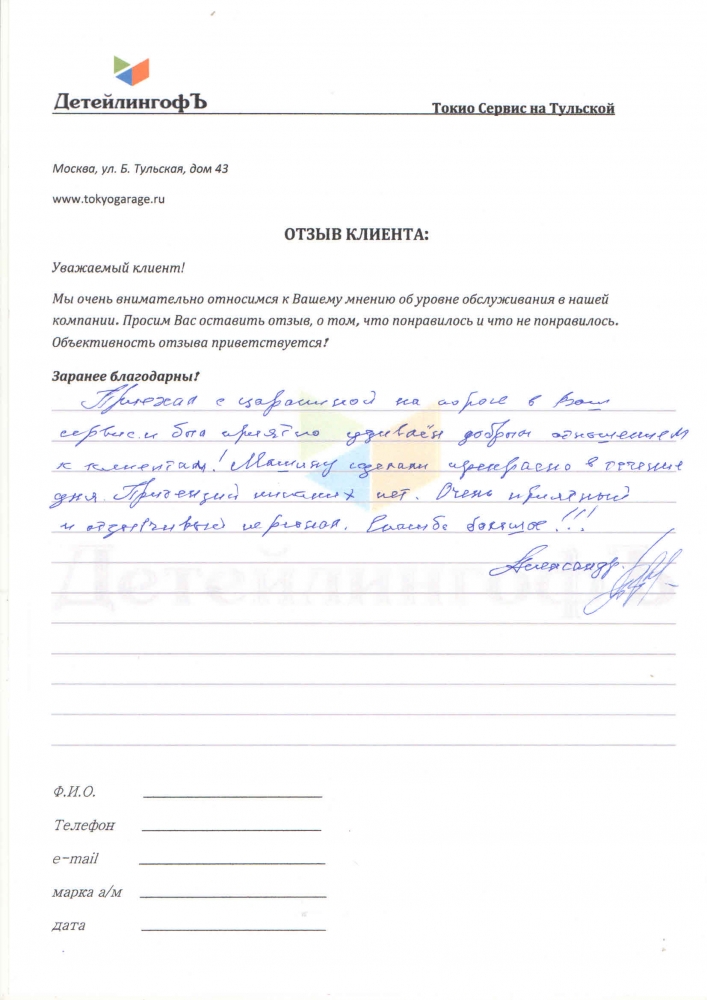 ДетейлингофЪ
Токио Сервис на Тульской
Москва, ул. Б. Тульская, дом 43
www.tokyogarage.ru
ОТЗЫВ КЛИЕНТА:
Уважаемый клиент!
Мы очень внимательно относимся к Вашему мнению об уровне обслуживания в нашей
компании. Просим Вас оставить отзыв, о том, что понравилось и что не понравилось.
Объективность отзыва приветствуется!
Заранее благодарны!
Приехал с царапиной на в Ваш
сервис и был приятно удивлён добрым отношением
к клиентам! Машину сделали прекрасно в течение
дня. Притензий никаких нет. Очень приятный
и отзывчивый персонал. Спасибо большое!!!
Александр.
ДетейлингофЪ
Ф.И.О.
Телефон
e-mail
марка а/м
дата